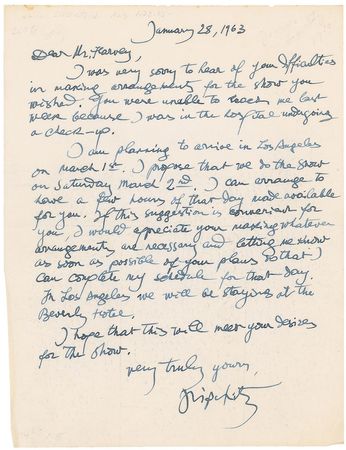 January 28, 1963
Dear Mr. Harvey,
I was very sorry to hear of your difficulties
in making arrangements for the show you
wished. You were unable to reach me last
week because I was in the hospital undergoing
a check-up.
I am planning to arrive in Los Angeles
on March 1st. I propose that we do the show
on Saturday March 2nd. I can arrange to
have a few hours of that day made available
for you. If this suggestion is convenient for
you, I would appreciate your making whatever
arrangements are necessary and letting me know
as soon as possible of your plans so that I
can complete my schedule for that day.
In Los Angeles we will be staying at the
Beverly Hotel.
I hope that this will meet your desires
for the show.
Very truly yours,